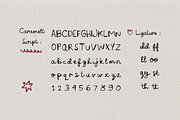 Caramell
Script:
ABCDEFGHIJKLMN
OPQRSTUVWXYZ
abcdefghijklm
nopqrstuvwxyz
1234567890
Ligature:
dd ff
ll oo
gg st
th tt